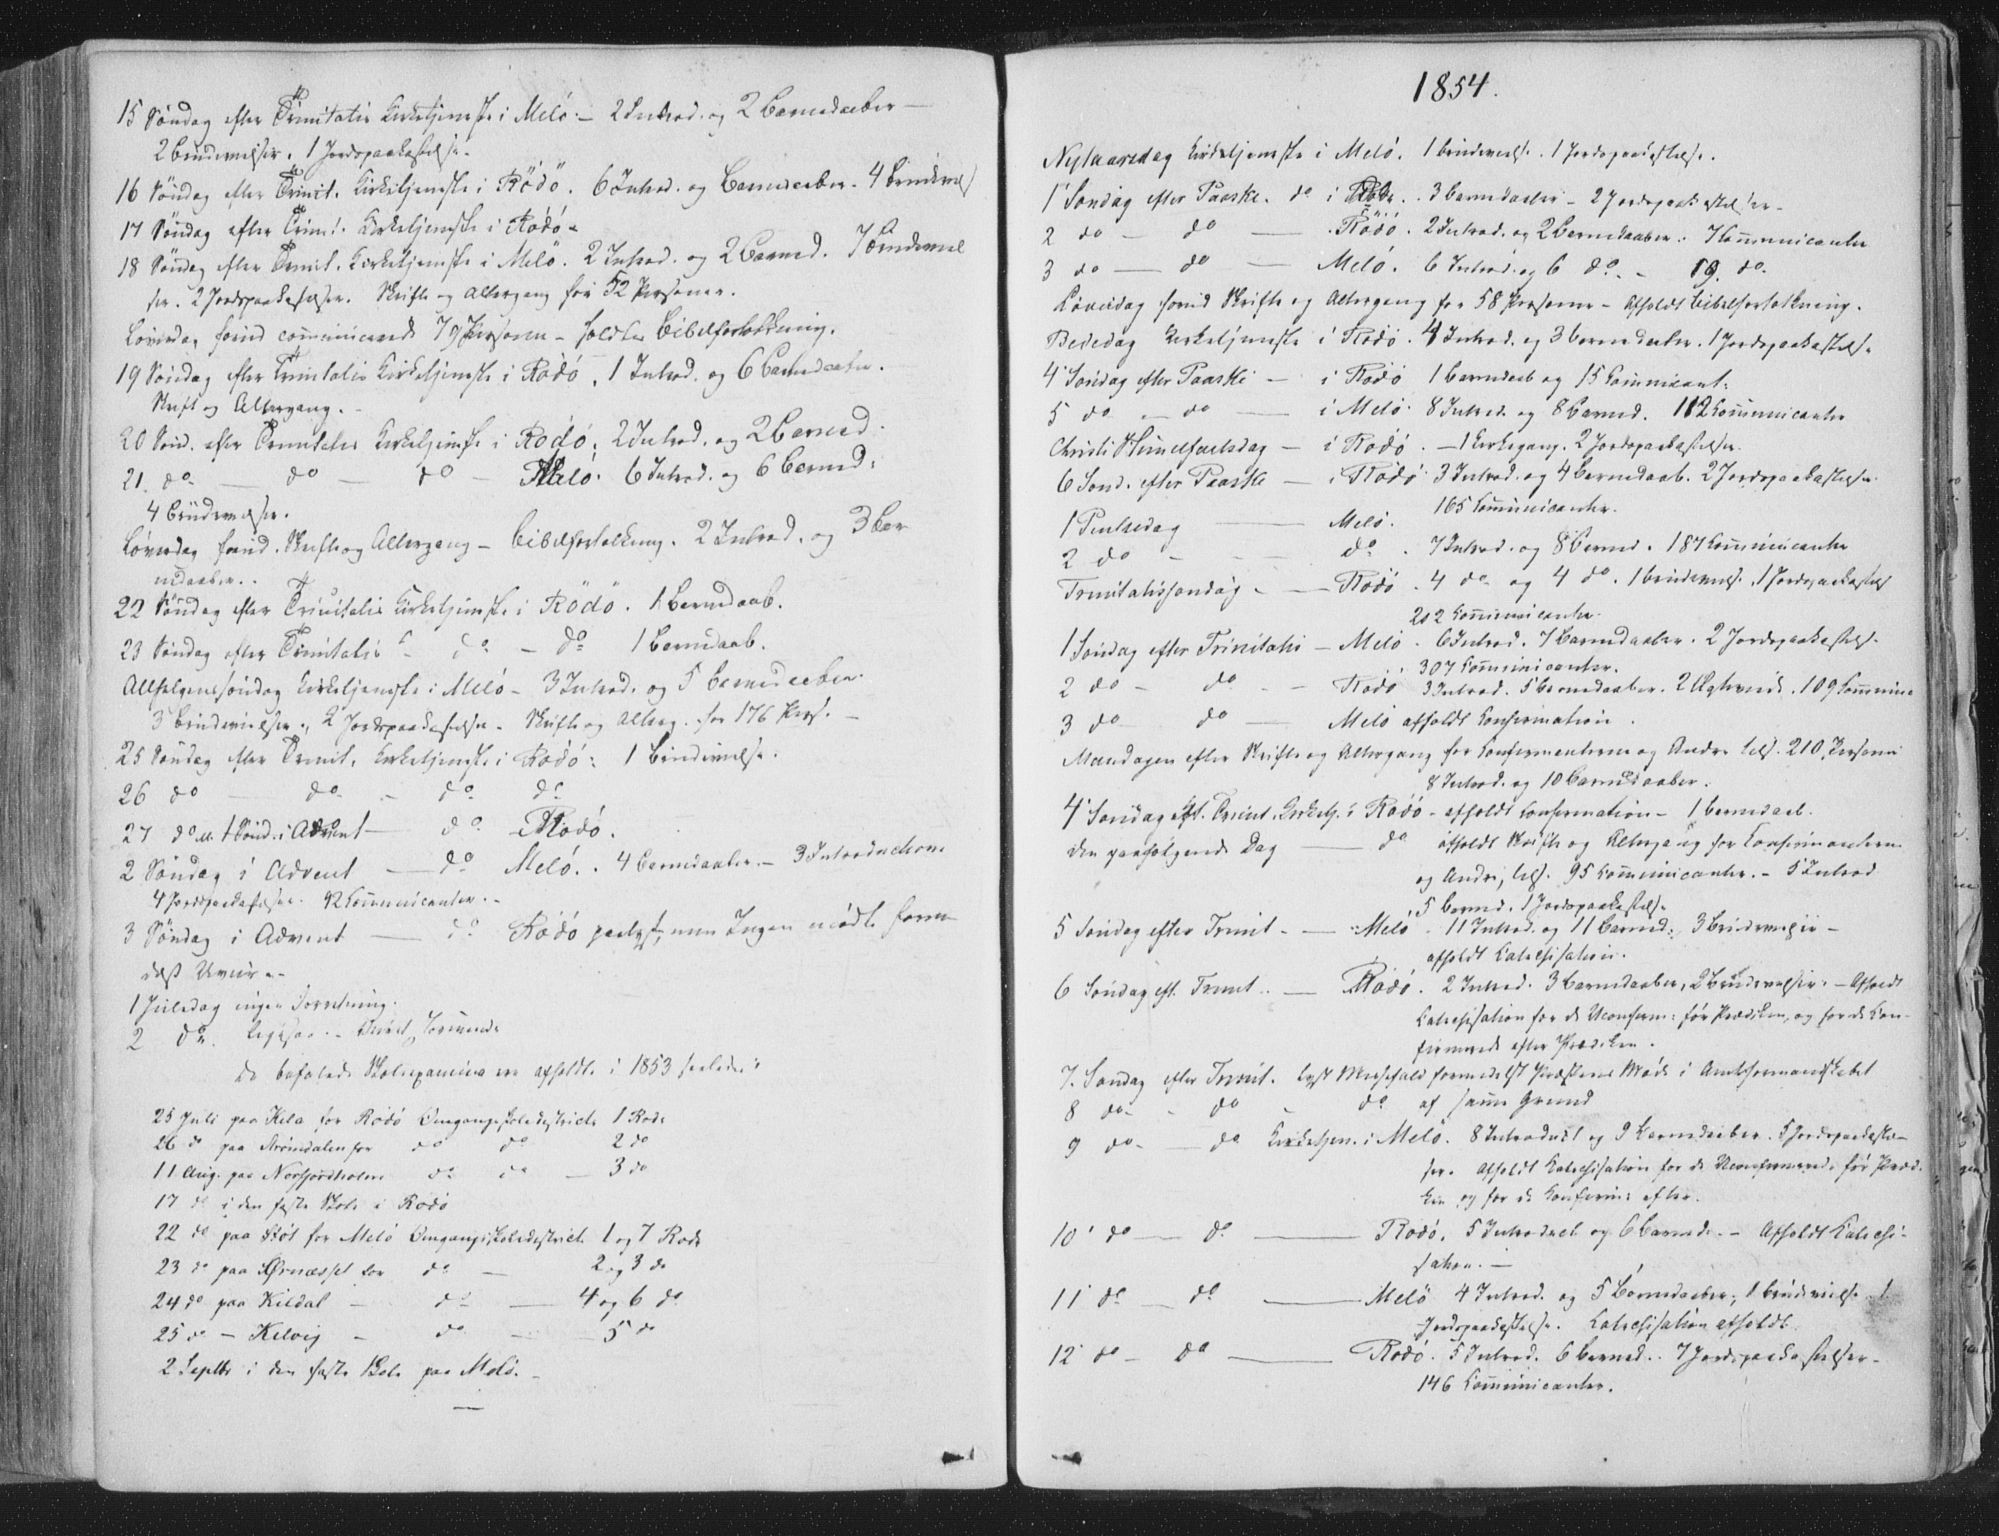 15 Søndag efter Trinitatis Kirketjeneste i Melö. – 2 Introd. og 2 Barnedaaber –
2 Brudevielser. 1 Jordspaakastelse.
16 Søndag efter Trinit. Kirketjeneste i Rödö. 6 Introd. og Barnedaaber. 4 Brudeviel
17 Søndag efter Trinit. Kirketjeneste i Rödö –
18 Søndag efter Trinit. Kirketjeneste i Melö. 2 Introd. og 2 Barned. 7 Brudeviel
ser. 2 Jordspaakastelser. Skrifte og Altergang for 52 Personer.
Løverdag forud communicerede 79 Personer – holdtes Bibelfortolkning.
19 Søndag efter Trinitatis Kirketjeneste i Rödö. 1 Introd. og 6 Barnedaaber.
Skrift og Altergang. –
20 Sønd. efter Trinitatis Kirketjeneste i Rödö. 2 Introd. og 2 Barned.
21. do – do – do – Melö. 6 Introd. og 6 Barned:
4 Brudevielser.
Løverdag forud. Skrifte og Altergang – Bibelfortolkning. 2 Introd. og 3 Bar
nedaaber. .
22 Søndag efter Trinitatis Kirketjeneste i Rödö. 1 Barnedaab.
23 Søndag efter Trinitatis – do – do 1 Barnedaab.
Allehelgenssøndag Kirketjeneste i Melö – 3 Introd. og 5 Barnedaaber.
3 Brudevielser., 2 Jordspaakastelser. Skrifte og Alterg. for 176 Pers. –
25 Søndag efter Trinit. Kirketjeneste i Rödö: 1 Brudevielse.
26 do – do – do do
27 do 1 Sønd. i Advent – do – Rödö.
2 Søndag i Advent – do Melö. . 4 Barnedaaber. – 3 Introductioner
4 Jordspaakastelser. 92 Communicanter. –
3 Søndag i Advent – do Rödö paalyst, men Ingen mødte form
delst Uveir. –
1 Juledag ingen Forretning.
2 do. ligesaa. –
De befalede Skoleexamina ere afholdte i 1853 saaledes:
25 Juli paa Kila for Rödö Omgangsskoledistrict 1 Rode
26 do paa Strömdalen for do do 2 do
11 Aug. paa Nordfjordholm do do – 3 do
17 do i den faste Skole i Rödö
22 do paa Støt for Melö Omgangsskoledistrict 1 og 7 Rode
23 do paa Ørnæsset for do – 2 og 3 do
24 do paa Kildal – do – 4 og 6 do
25 do – Kilvig – do – 5 do
2 Septbr i den faste Skole paa Melö. –
1854.
Nytaarsdag Kirketjeneste i Melö. 1 Brudevielse. 1 Jordspaakastelse.
1 Søndag efter Paaske. do i Rödö. . 3 Barnedaaber – 2 Jordspaakastelser –
2 do – do – Rödö. 2 Introd. og 2 Barnedaaber. 7 Communicanter
3 do – do – Melö. 6 Introd. og 6 do. – 19. do.
Løverdag forud Skrifte og Altergang for 58 Personer – Afholdt Bibelfortolkning.
Bededag Kirketjeneste i Rödö. 4 Introd. og 3 Barnedaaber. 1 Jordspaakastelse
4 Søndag efter Paaske – i Rödö 1 Barnedaab og 15 Communicant:
5 do – do – i Melö. 8 Introd. og 8 Barned. 112 Communicanter
Christi Himmelfartsdag – i Rödö. – 1 Kirkegang. 2 Jordspaakastelser.
6 Sønd. efter Paaske – i Rödö 3 Introd. og 4 Barnedaab. 2 Jordspaakastelser.
165 Communicanter.
1 Pintsedag – Melö.
2 do – do. 7 Introd. og 8 Barned. 187 Communicanter
Trinitatissøndag – – Rödö. 4 do og 4 do. 1 Brudeviels. 1 Jordspaakastels
212 Communicanter.
1 Søndag efter Trinitatis – Melö. 6 Introd. 7 Barnedaaber. 2 Jordspaakastels.
307 Communicanter.
2 do – do – Rödö 3 Introd. 5 Barnedaaber. 2 109 Commun
3 do do – Melö afholdt Confirmation.
Mandagen efter Skrifte og Altergang for Confirmanterne og Andre tils. 210 Personer
8 Introd. og 10 Barnedaaber.
4 Søndag eft. Trinit. Kirketj. i Rödö – afholdt Confirmation – 1 Barnedaab.
Den paafølgende Dag – do afholdt Skrifte og Altergang for Confirmanterne
og Andre, tils. 95 Communicanter. – 5 Introd
5 Barned. 1 Jordspaakastelse
5 Søndag efter Trinit – – Melö – 11 Introd. og 11 Barned:, 3 Brudevielser –
afholdt Catechisation.
6 Søndag eft. Trinit. – Rödö. 2 Introd. 3 Barnedaaber, 2 Brudevielser. – Afholdt
Catechisation for de Uconfirm: før Prædiken, og for de Con-
firmerede efter Prædiken.
7. Søndag efter Trinit. lyst Messefald formedelst Præstens Møde i Amtsformandskabet
8 do – do – do af samme Grund
9 do – do Kirketjen. i Melö. 8 Introduct og 9 Barnedaaber. 5 Jordspaakastel-
ser. Afholdt Catechisation for de Uconfirmerede før Prædi
ken og for de Confirm: efter.
10 do – do – Rödö. 5 Introduct og 6 Barned. – Afholdt Catechi-
sation. –
11 do – do – Melö 4 Introd. og 5 Barnedaaber, 1 Brudevielse. 1
Jordspaakastelse. Catechisation afholdt.
12 do – do – Rödö. 5 Introd. 6 Barned. . 7 Jordspaakastelser –
146 Communicanter.